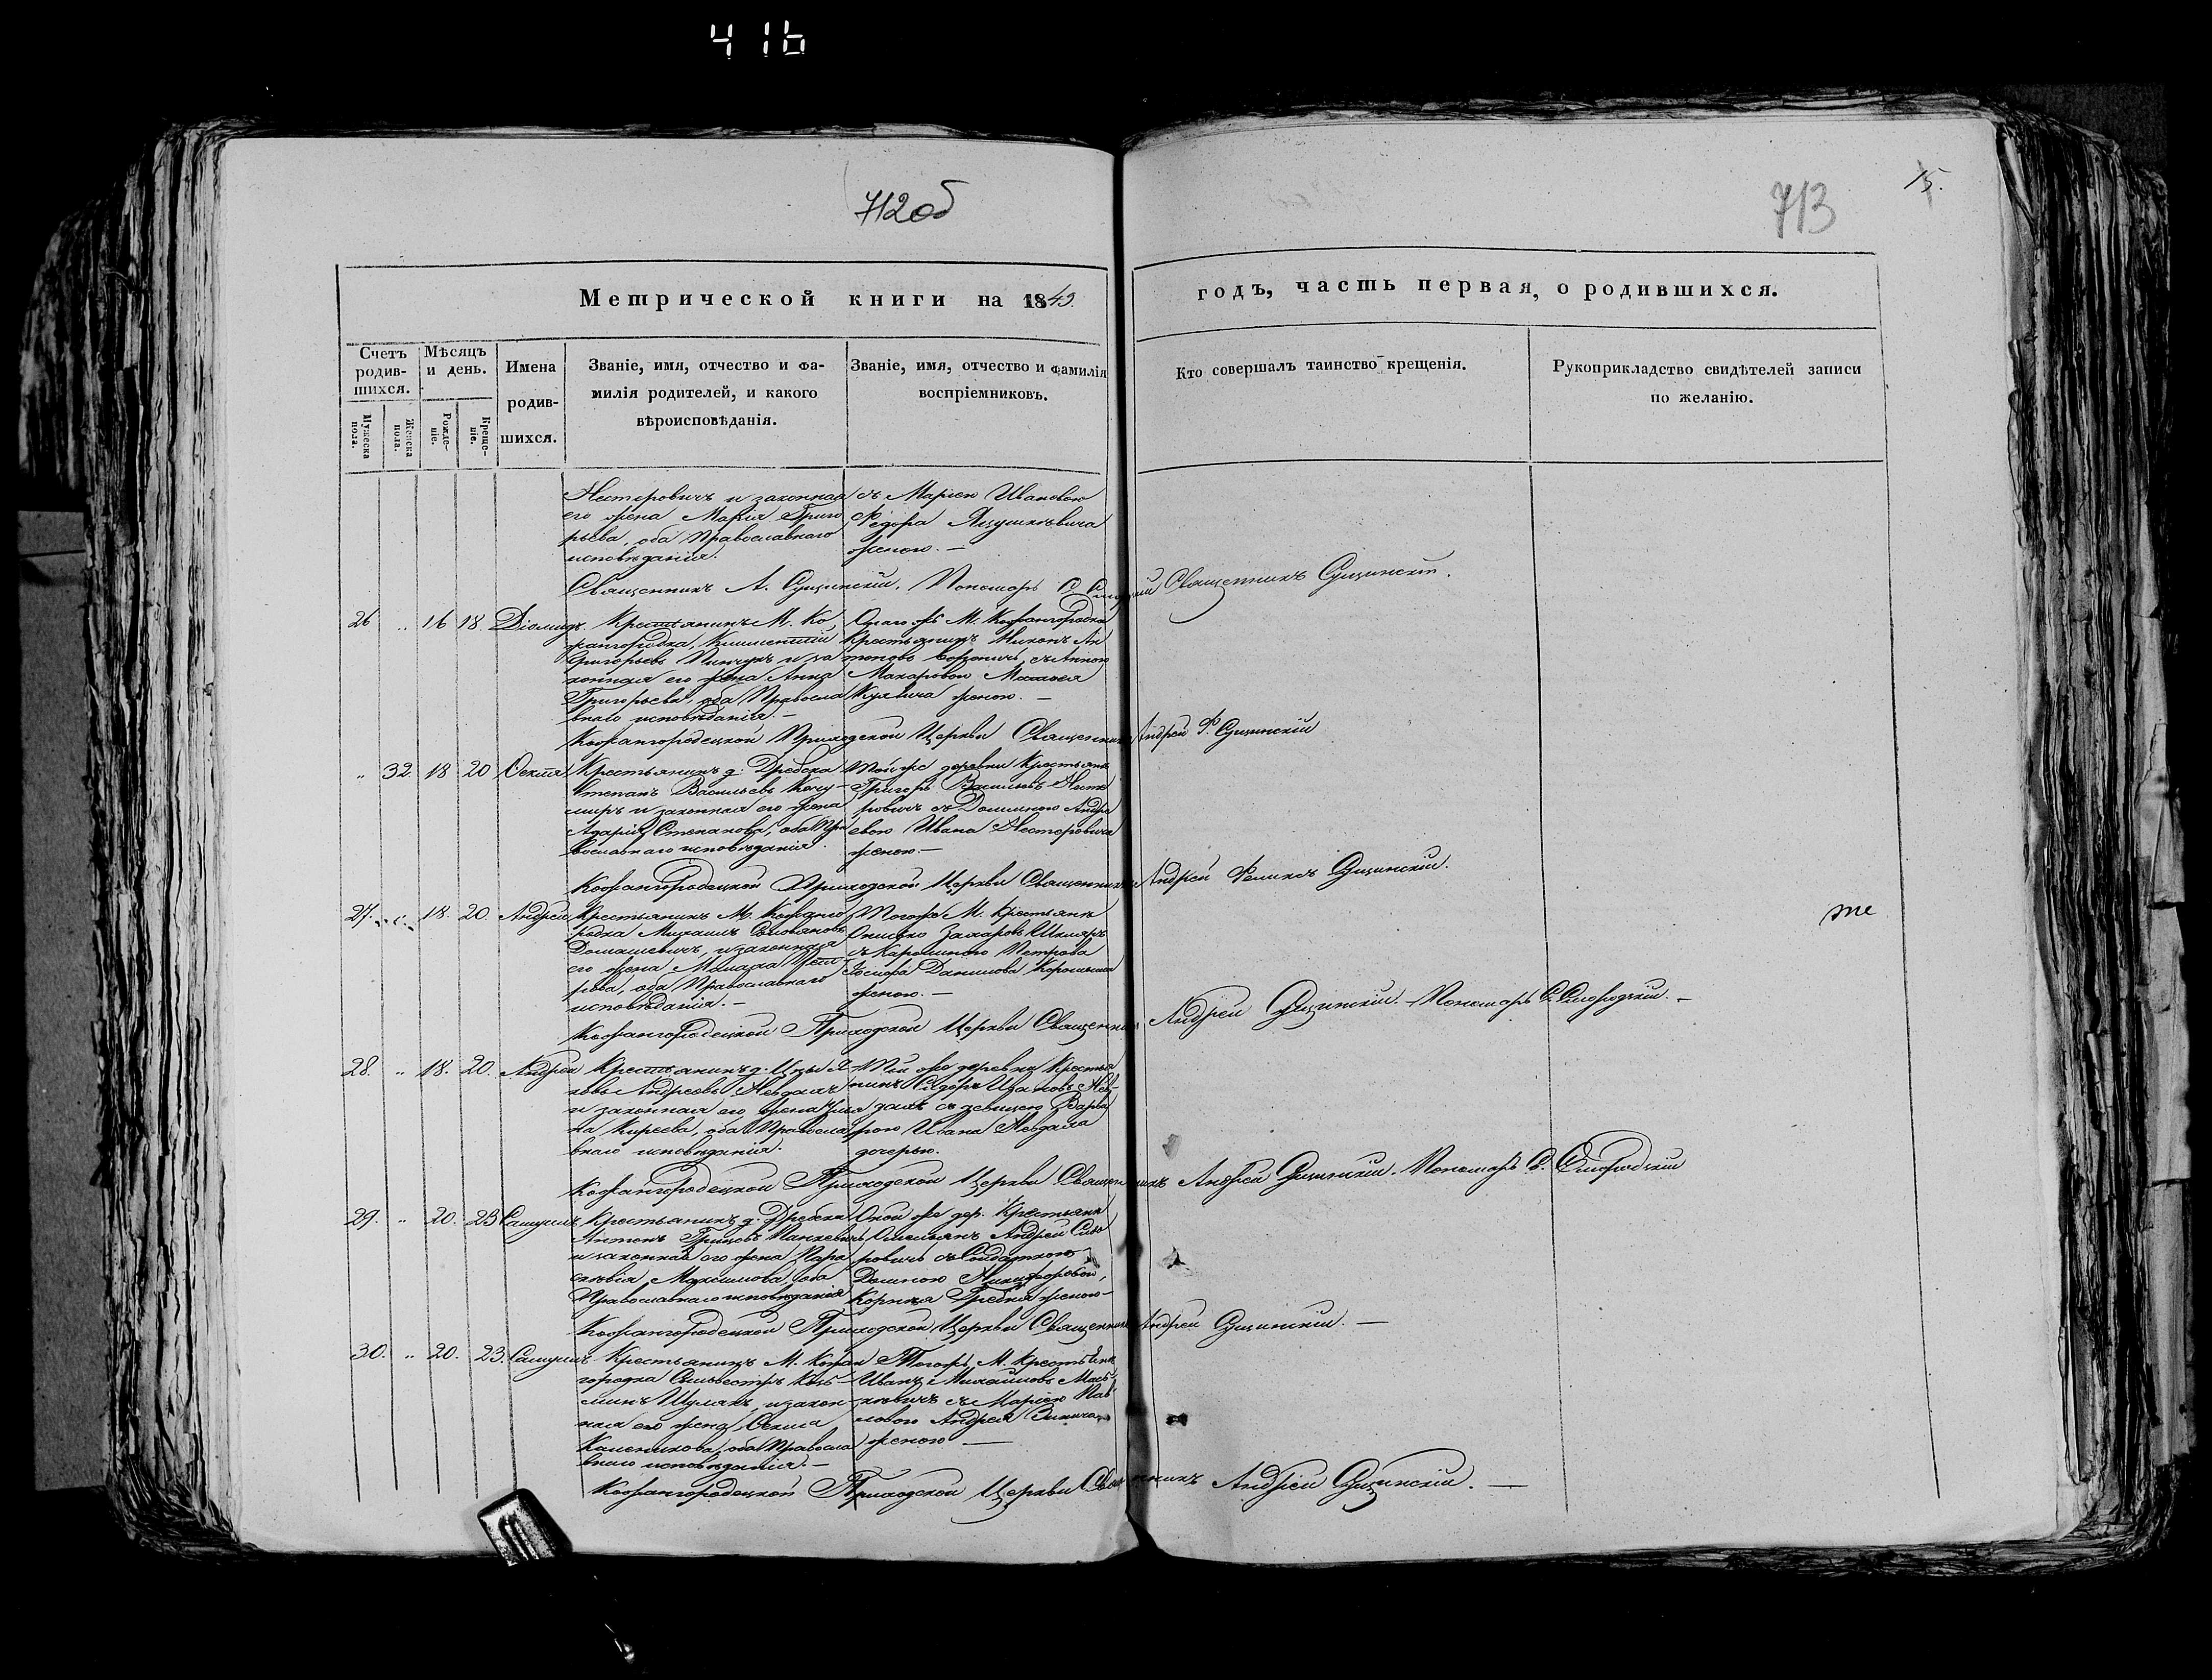 416
712об
713
15.
Метрической книги на 1849.
годъ, часть первая, о родившихся.
Счетъ родившихся.
Мужеска пола.
Женска пола.
Мѣсяцъ и день.
Рожденіе.
Крещеніе.
Имена родившихся.
Званіе, имя, отчество и фамилія родителей, и какого вѣроисповѣданія.
Званіе, имя, отчество и фамилія воспріемниковъ.
Кто совершалъ таинство крещенія.
Рукоприкладство свидѣтелей записи по желанію.
Нестеровичъ и законная
его жена Марія Григо
рьева, оба Православнаго
исповѣданія.
съ Маріею Ивановою
Федора
женою. —
Священникъ А. Сущинскій. Пономарь С.
Священникъ Сущинскій.
26 „ 16 18 Діомидъ.
Крестьянинъ М. Ко
жангородка, Климентій
Григорьевъ Пинчукъ и за
конная его жена Анна
Григорьева, оба Правосла
внаго исповѣданія. —
М. Кожангородка
Крестьянинъ Никонъ Ан
тоновъ съ Анною
Макаровою
женою. —
Кожангородецкой Приходской Церкви Священникъ Андрей Ф. Сущинскій
„ 32 18 20
Крестьянинъ д. Дребска
Степанъ Васильевъ
и законная его жена
Степанова, оба Пра
вославнаго исповѣданія.
Той же деревни Крестьян
Григорь Васильевъ
съ Домникою Андре
евою Ивана Нестеровича
женою. —
Кожангородецкой Приходской Церкви Священникъ Андрей Феликсъ Сущинскій.
27. „ 18. 20. Андрей
Крестьянинъ М. Кожанго
родка Михаилъ
Домашевичъ, и законная
его жена Пет
рова, оба Православнаго
исповѣданія. —
Тогоже М. Крестьян
Захаровъ Шкляръ
съ Петрова
Іосифа Данилова
женою. —
Кожангородецкой Приходской Церкви Священникъ Андрей Сущинскій. Пономарь С. Смородскій. —
28. „ 18. 20. Андрей
Крестьянинъ д. Цны Я
ковъ Андреевъ Невдахъ
и законная его жена Улья
на Киреева, оба Правосла
внаго исповѣданія.
Той же деревни Крестья
нинъ Сидоръ Ивановъ Нев
дахъ съ девицею Варва
рою Ивана Невдаха
дочерью.
Кожангородецкой Приходской Церкви Священникъ Андрей Сущинскій. Пономарь С. Смородскій
29. „ 20. 23 Самуилъ
Крестьянинъ д. Дребска
Антонъ Грицовъ Панкевичъ
и законная его жена Пара
скевія Максимова, оба
Православнаго исповѣданія
Оной же дер. Крестьян
Омельянъ Андрей
съ Солдаткою
Домною Никифоровою,
женою —
Кожангородецкой Приходской Церкви Священникъ Андрей Сущинскій. —
30. „ 20. 23. Самуилъ
Крестьянинъ М. Кожан
городка Сильвестръ Кузь
минъ Шулякъ, и закон
ная его жена
оба Правосла
внаго исповѣданія. —
Тогожъ М. Крестьян
Иванъ Михайловъ
съ Маріею Пав
ловою Андрея
женою —
Кожангородецкой Приходской Церкви Священникъ Андрей Сущинскій. —